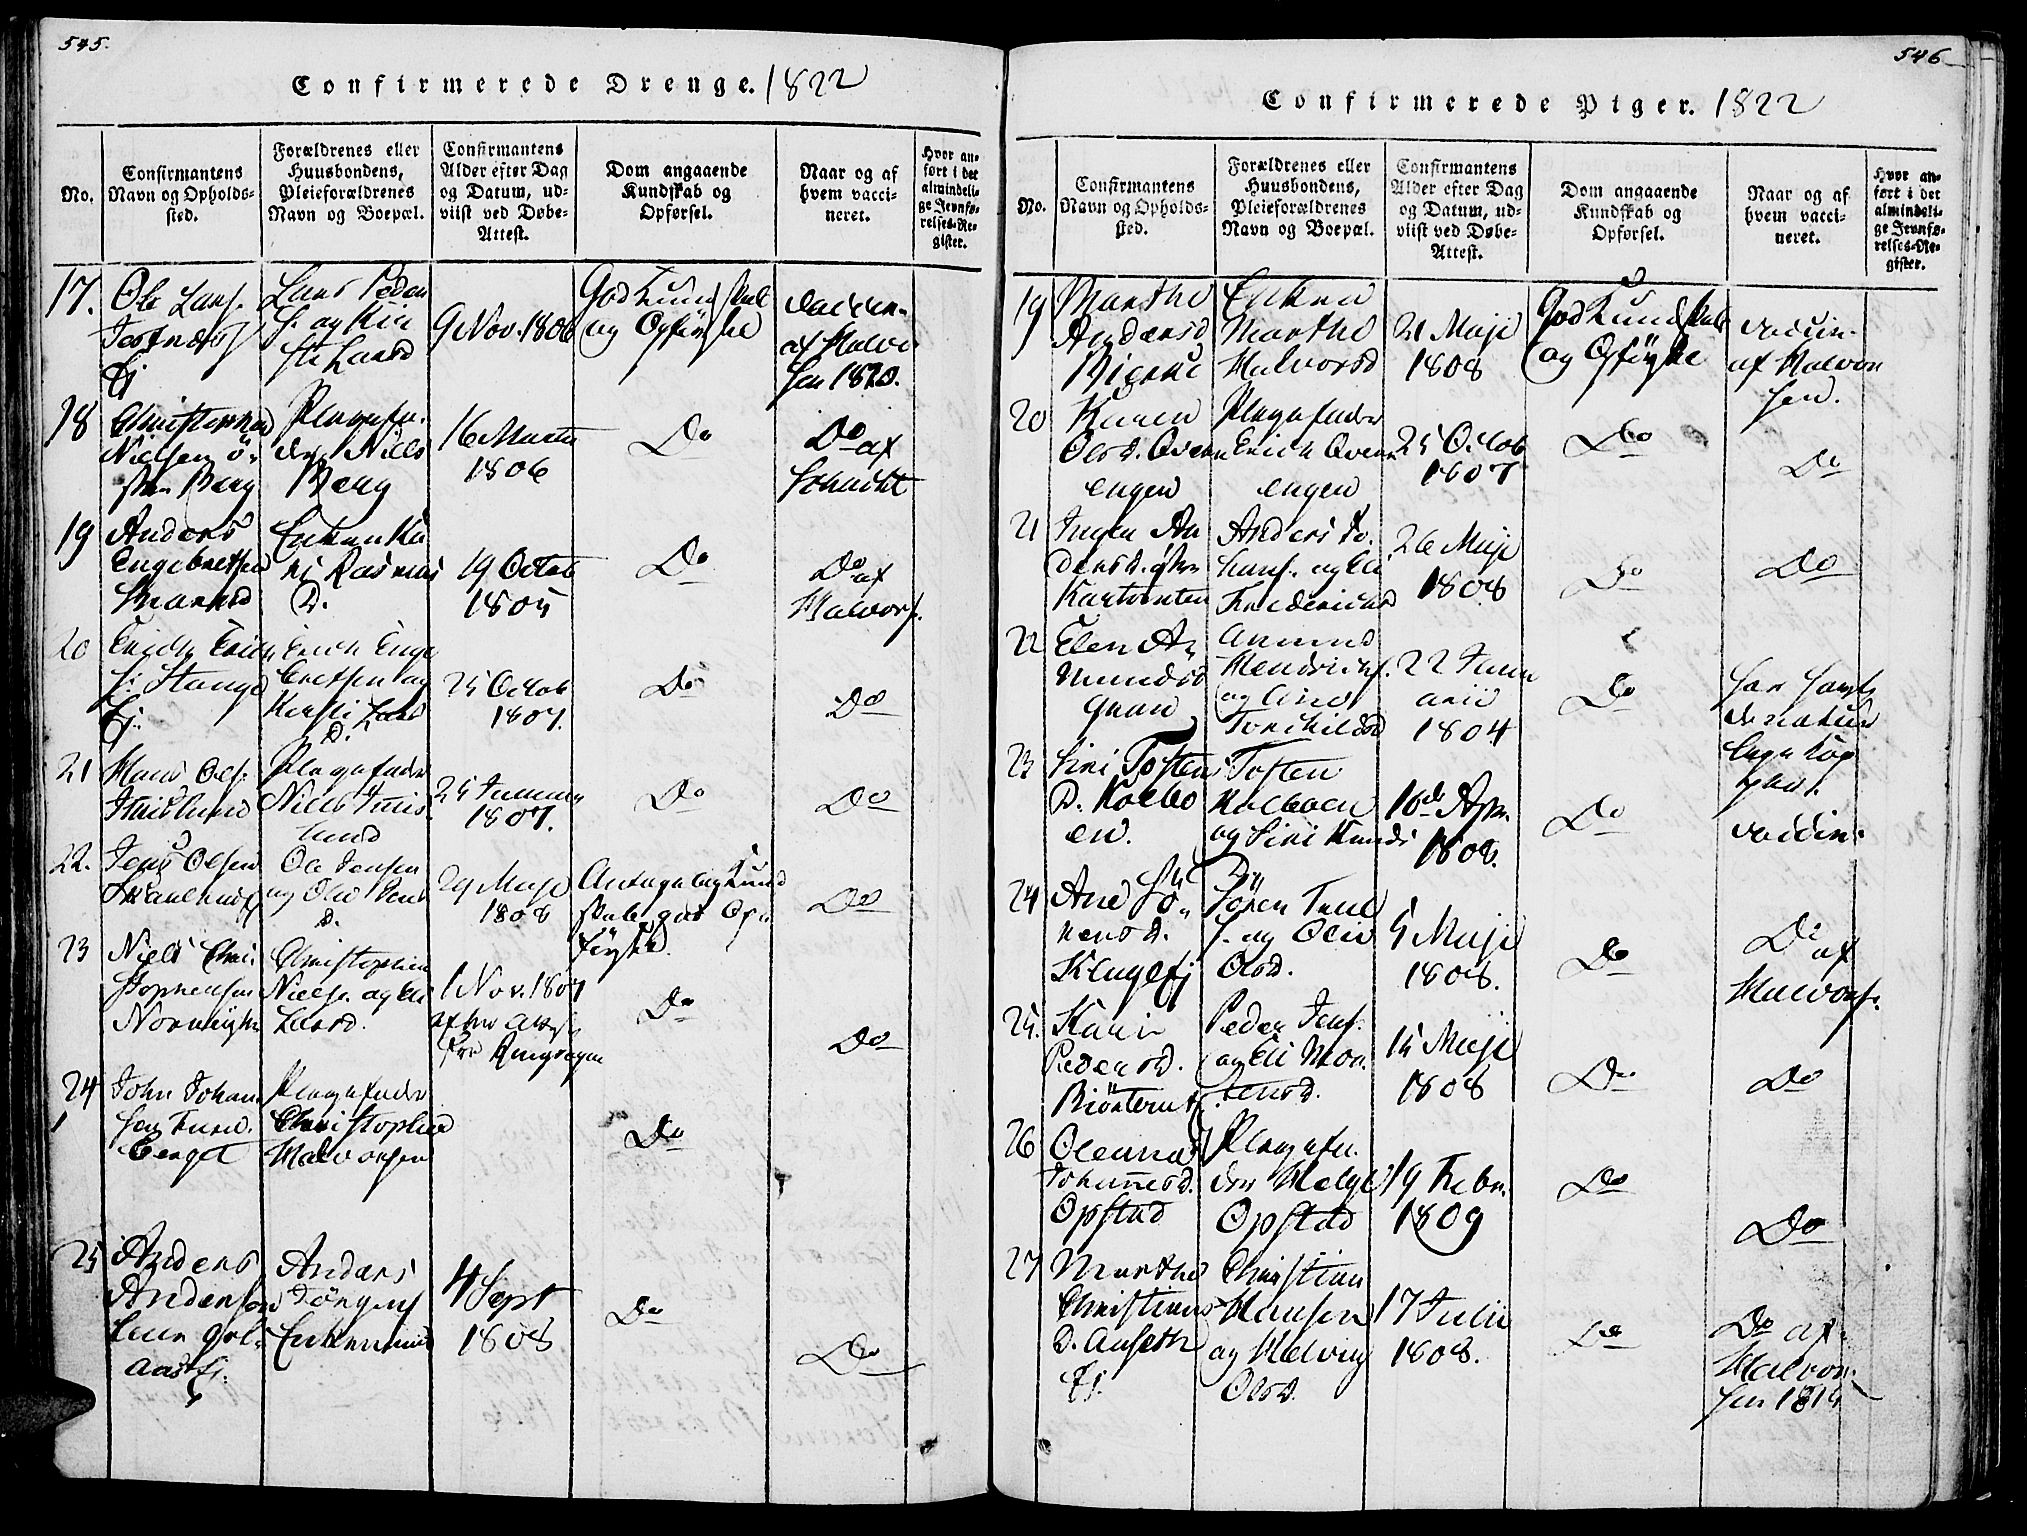 545.
Confirmerede Drenge. 1822
No.
Confirmantens
Navn og Opholds-
sted.
Forældrenes eller
Huusbondens,
Pleieforældrenes
Navn og Boepæl.
Confirmantens
Alder efter Dag
og Datum, ud-
viist ved Døbe-
Attest.
Dom angaaende
Kundskab og
Opførsel.
Naar og af
hvem vacci-
neret.
Hvor an-
ført i det
almindeli-
ge Jevnfø-
relses-Re-
gister.
17.
Ole Lars.
Ej
Lars Peder
S. og
Larsd
9 Nov. 1806
God Kundskab
og Opførsel
af Halvor
sen 1820.
18
Christopher
Nielsen
Berg
Plagefa-
der Niels
Berg
16 Marti
1806
Do
Do af
Schacht
19
Anders
Engebretsen
Enken Ka
ri Rasmus
D.
19 Octob
1805
Do
Do af
Halvors.
20
Erich Erich
S. Stange
Ej.
Erich Enge
bretsen og
Kersti Lars
D.
25 Octob
1807.
Do
Do
21
Hans Ols.
Plagefader
Niels
lund
25 Januar
1807.
Do
Do
22.
Jens Olsen
Ole Jensen
og
D.
29 Maji
1808
Antagelig Kund
skab god Op
førsel.
Do
23
Niels Chri
stophersen
Christopher
Niels. og Eli
Larsd.
1 Nov. 1807
Ringsager
Do
Do
24
John Johan
sen
Plagefader
Christopher
Halvorsen
Do
25
Anders
Andersen
aas Ej.
Anders
Jörgens
Enkemand
4 Sept
1808
Do
Do
546
Confirmerede Piger. 1822
No.
Confirmantens
Navn og Opholds-
sted.
Forældrenes eller
Huusbondens,
Pleieforældrenes
Navn og Boepæl.
Confirmantens
Alder efter Dag
og Datum, ud-
viist ved Døbe-
Attest.
Dom angaaende
Kundskab og
Opførsel.
Naar og af
hvem vacci-
neret.
Hvor an-
ført i det
almindeli-
ge Jevnfø-
relses-Re-
gister.
19
Marthe
Andersd
Bierke
Enken
Marthe
Halvorsd
21 Maji
1808
God Kundskab
og Opførsel
vaccin.
af Halvor
sen.
20
Karen
Olsd. Overn
engen
Plagefader
Erich Overn
engen
25 Octob
1807
Do
Do
21
Inger An
dersd.
Anders Jo
hans. og Eli
Fredericsd
26 Maji
1808
Do
Do
22
Elen A
mundsd
Amund
Hendrichs.
og
Torchilsd
22 Janu
arii
1804
Do
har havt
de naturl
lige Kop
per.
23
Siri Tosten
D. Kolbo
en.
Tosten
Kolboen
og Siri Knuds
D
10de Apr.
1808.
Do
vaccin.
24
Ane Sö
rensd.
Sören
S. og
Olsd.
5 Maji
1808.
Do
Do af
Halvors.
25.
Kari
Pedersd.
Peder Jens.
og Eli Mor
tensd.
15 Maji
1808
Do
Do
26
Oleana
Johannesd.
Opstad
Plagefa-
der Helge
Opstad
19 Febr.
1809
Do
Do
27
Marthe
Christians
D.
Ej.
Christian
Hansen
og Helvig
Olsd.
17 Julii
1808.
Do
Do af
Halvor
sen 1814